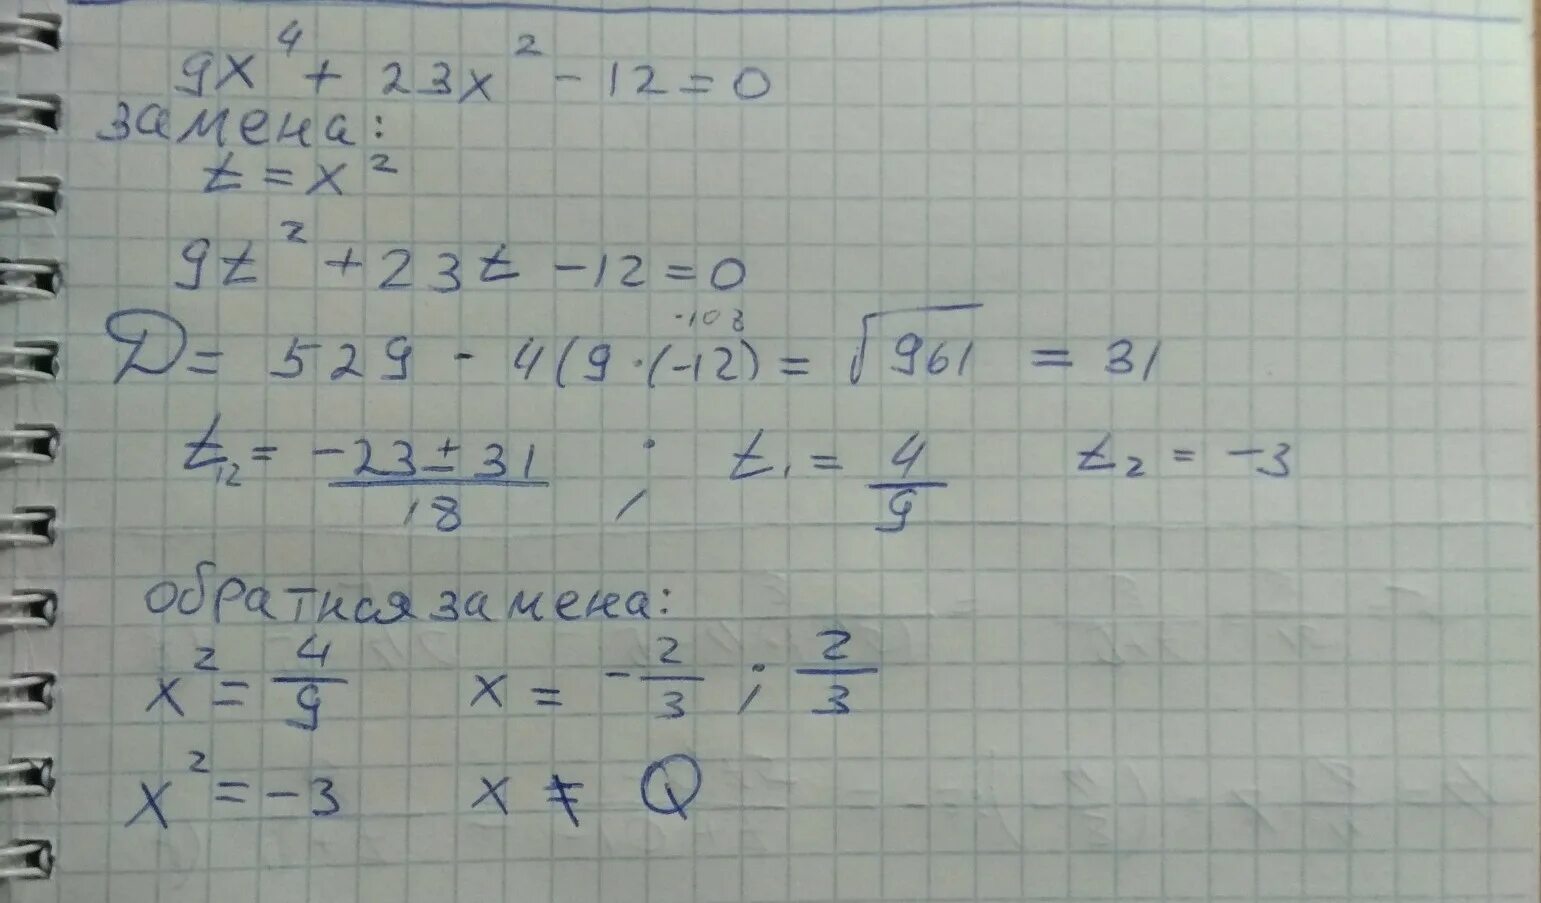 9x⁴ + 23x² - 12 = 0
замена:
t = x²
9t² + 23t - 12 = 0
-108
D = 529 - 4(9·(-12) = √961 = 31
t₁₂ = (-23 ± 31)/18 ; t₁ = 4/9 t₂ = -3
обратная замена:
x² = 4/9 x = -2/3 ; 2/3
x² = -3 x ≠ Q